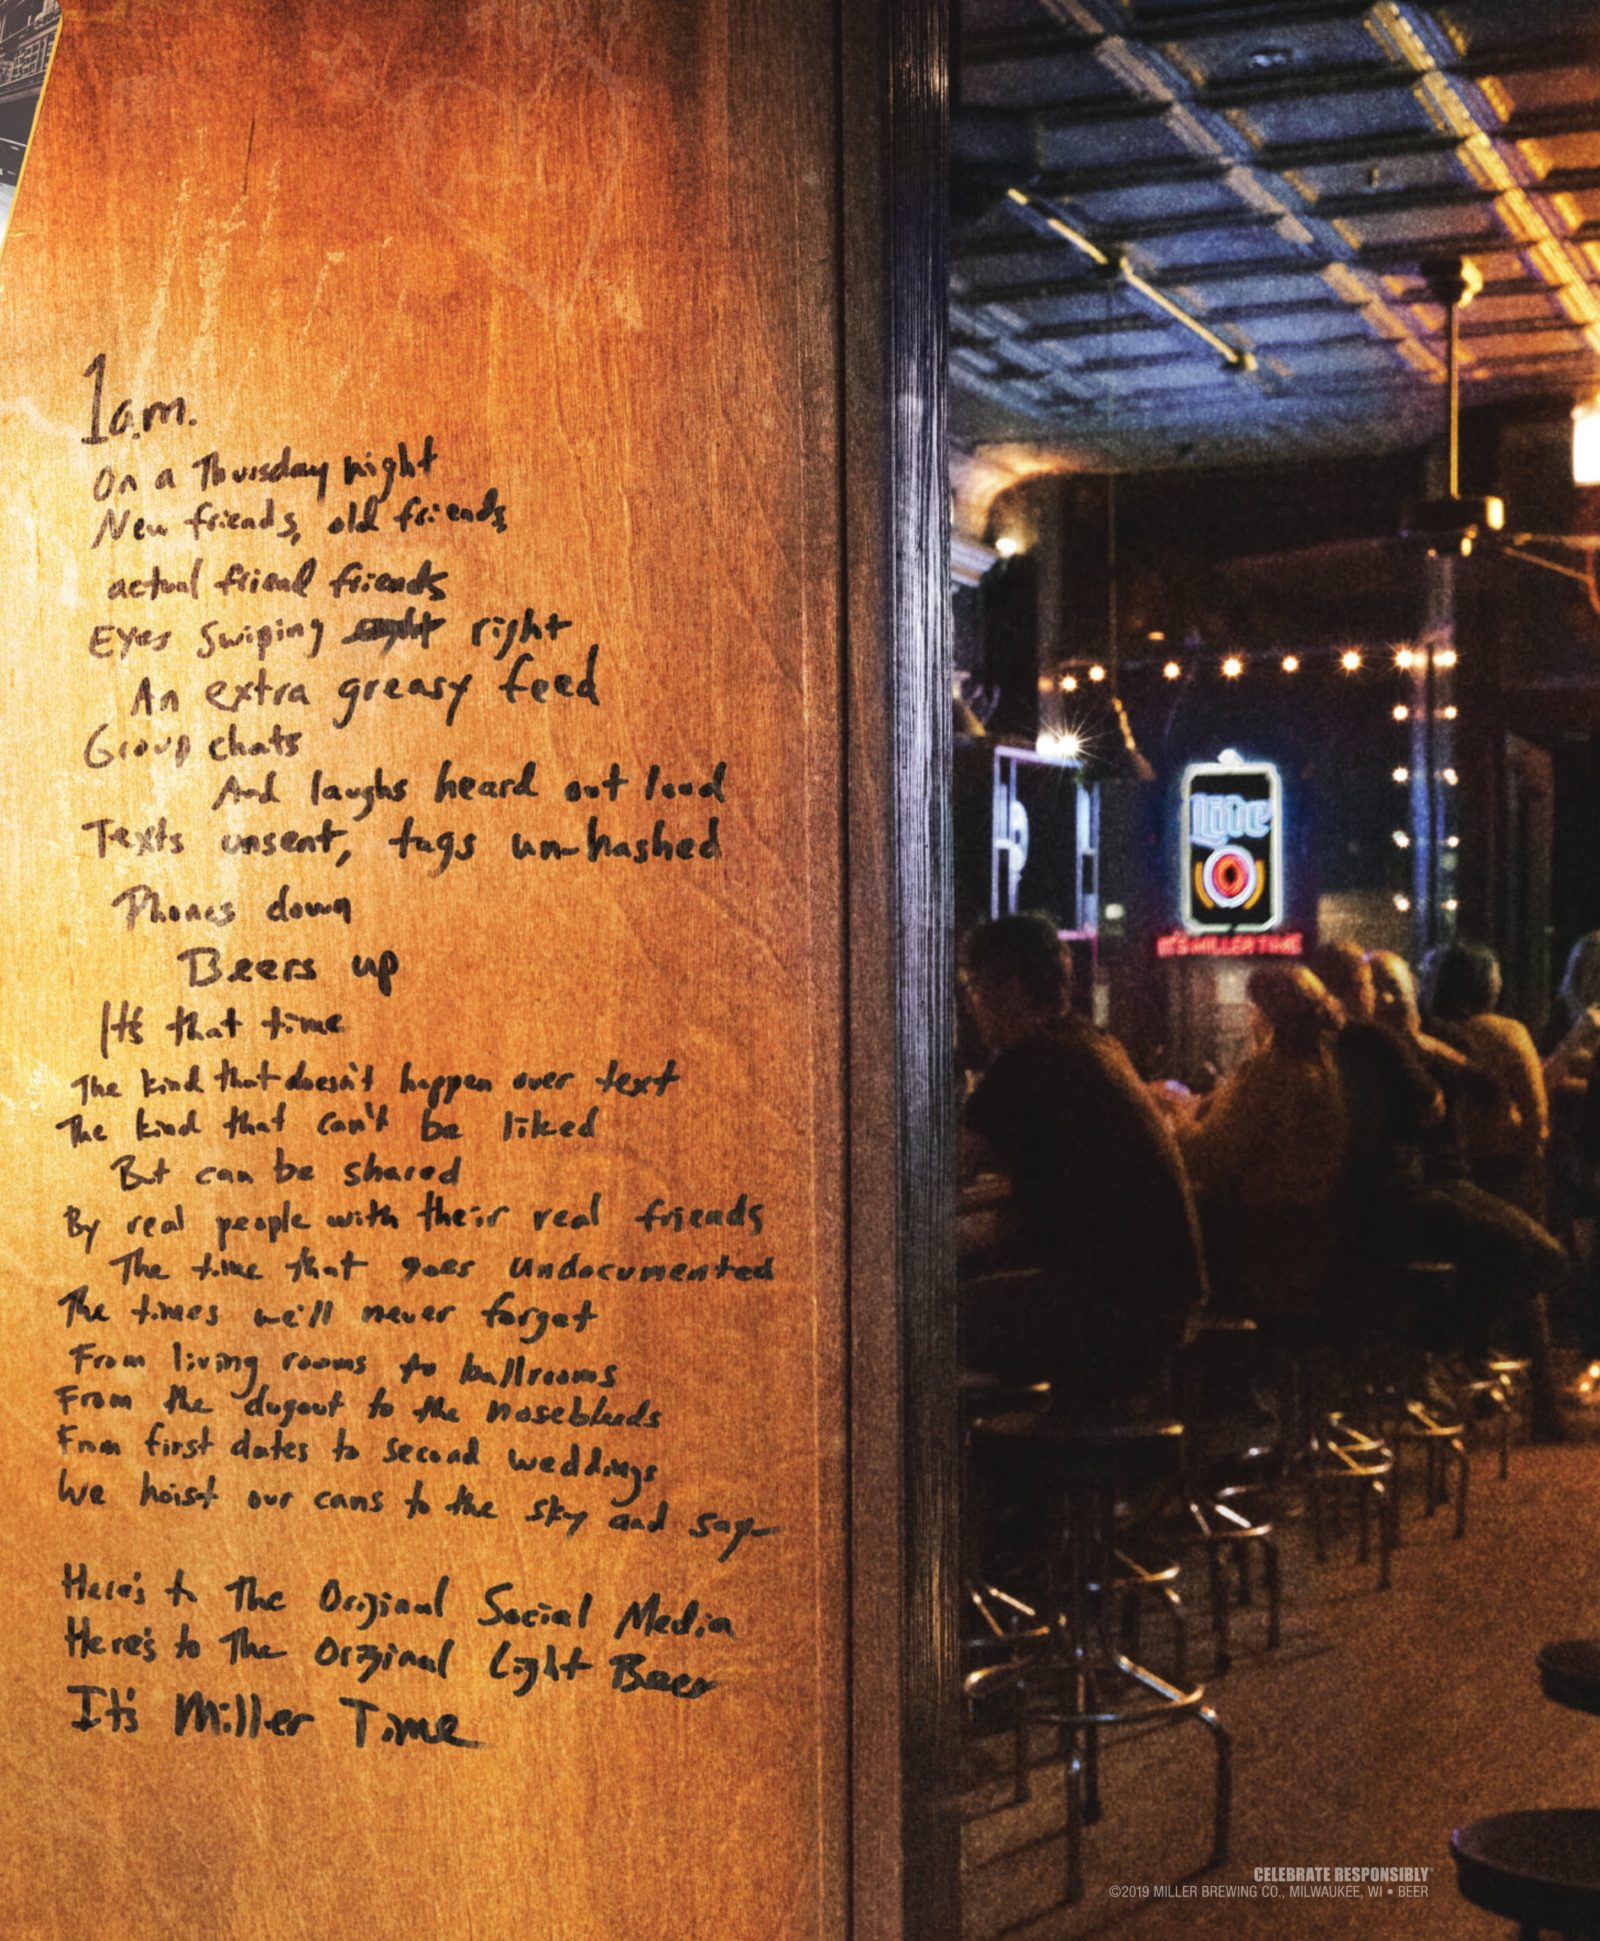 1a.m.
On a Thursday night
New friends, old friends
actual friend friends
Eyes swiping right
An extra greasy feed
Group chats
And laughs heard out loud
Texts unsent, tags un-hashed
Phones down
Beers up
It's that time
The kind that doesn't happen over text
The kind that can't be liked
But can be shared
By real people with their real friends
The time that goes undocumented
The times we'll never forget
From living rooms to ballrooms
From the dugout to the nosebleeds
From first dates to second weddings
We hoist our cans to the sky and say—
Here's to The Original Social Media
Here's to The Original Light Beer
It's Miller Time
Lite
IT'S MILLER TIME
CELEBRATE RESPONSIBLY®
©2019 MILLER BREWING CO., MILWAUKEE, WI • BEER